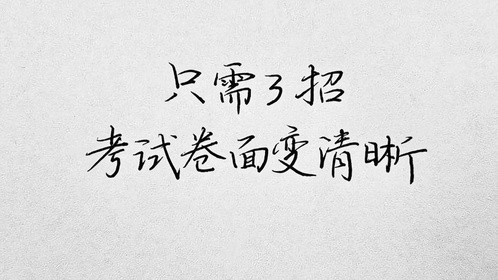 只需3招
考试卷面变清晰